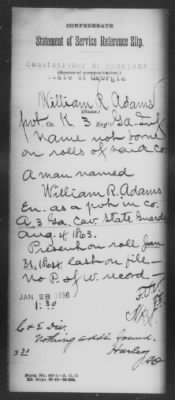 CONFEDERATE
Statement of Service Reference Slip.
Commissioner of Pensions
State of Georgia
William R. Adams
(Name.)
pvt. Co. K 3 Reg't Ga. Inf
Name not borne
on rolls of said Co.
A man named
William R. Adams
En. as a pvt. in Co.
A, 3 Ga. Cav. State Guards
Aug. 4 1863.
Present on roll Jan
31, 1864 last on file—
No P. of W. record—
JAN 28 1916
C & E Div.
Nothing addl found.
Harley